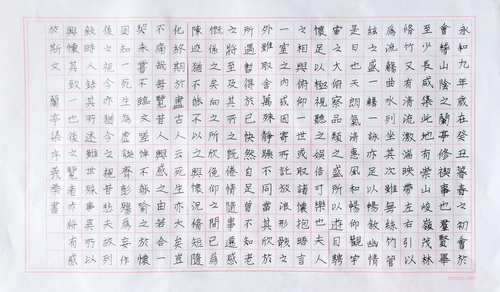 永和九年歲在癸丑暮春之初會於
會稽山陰之蘭亭修禊事也羣賢畢
至少長咸集此地有崇山峻嶺茂林
修竹又有清流激湍映帶左右引以
為流觴曲水列坐其次雖無絲竹管
絃之盛一觴一詠亦足以暢敘幽情
是日也天朗氣清惠風和暢仰觀宇
宙之大俯察品類之盛所以遊目騁
懷足以極視聽之娛信可樂也夫人
之相與俯仰一世或取諸懷抱晤言
一室之內或因寄所託放浪形骸之
外雖取舍萬殊靜躁不同當其欣於
所遇暫得於己快然自足曾不知老
之將至及其所之既倦情隨事遷感
慨係之矣向之所欣俛仰之間已為
陳迹猶不能不以之興懷況脩短隨
化終期於盡古人云死生亦大矣豈
不痛哉每覽昔人興感之由若合一
契未嘗不臨文嗟悼不能喻之於懷
固知一死生為虛誕齊彭殤為妄作
後之視今亦猶今之視昔悲夫故列
敘時人錄其所述雖世殊事異所以
興懷其致一也後之覽者亦將有感
於斯文 蘭亭集序 書